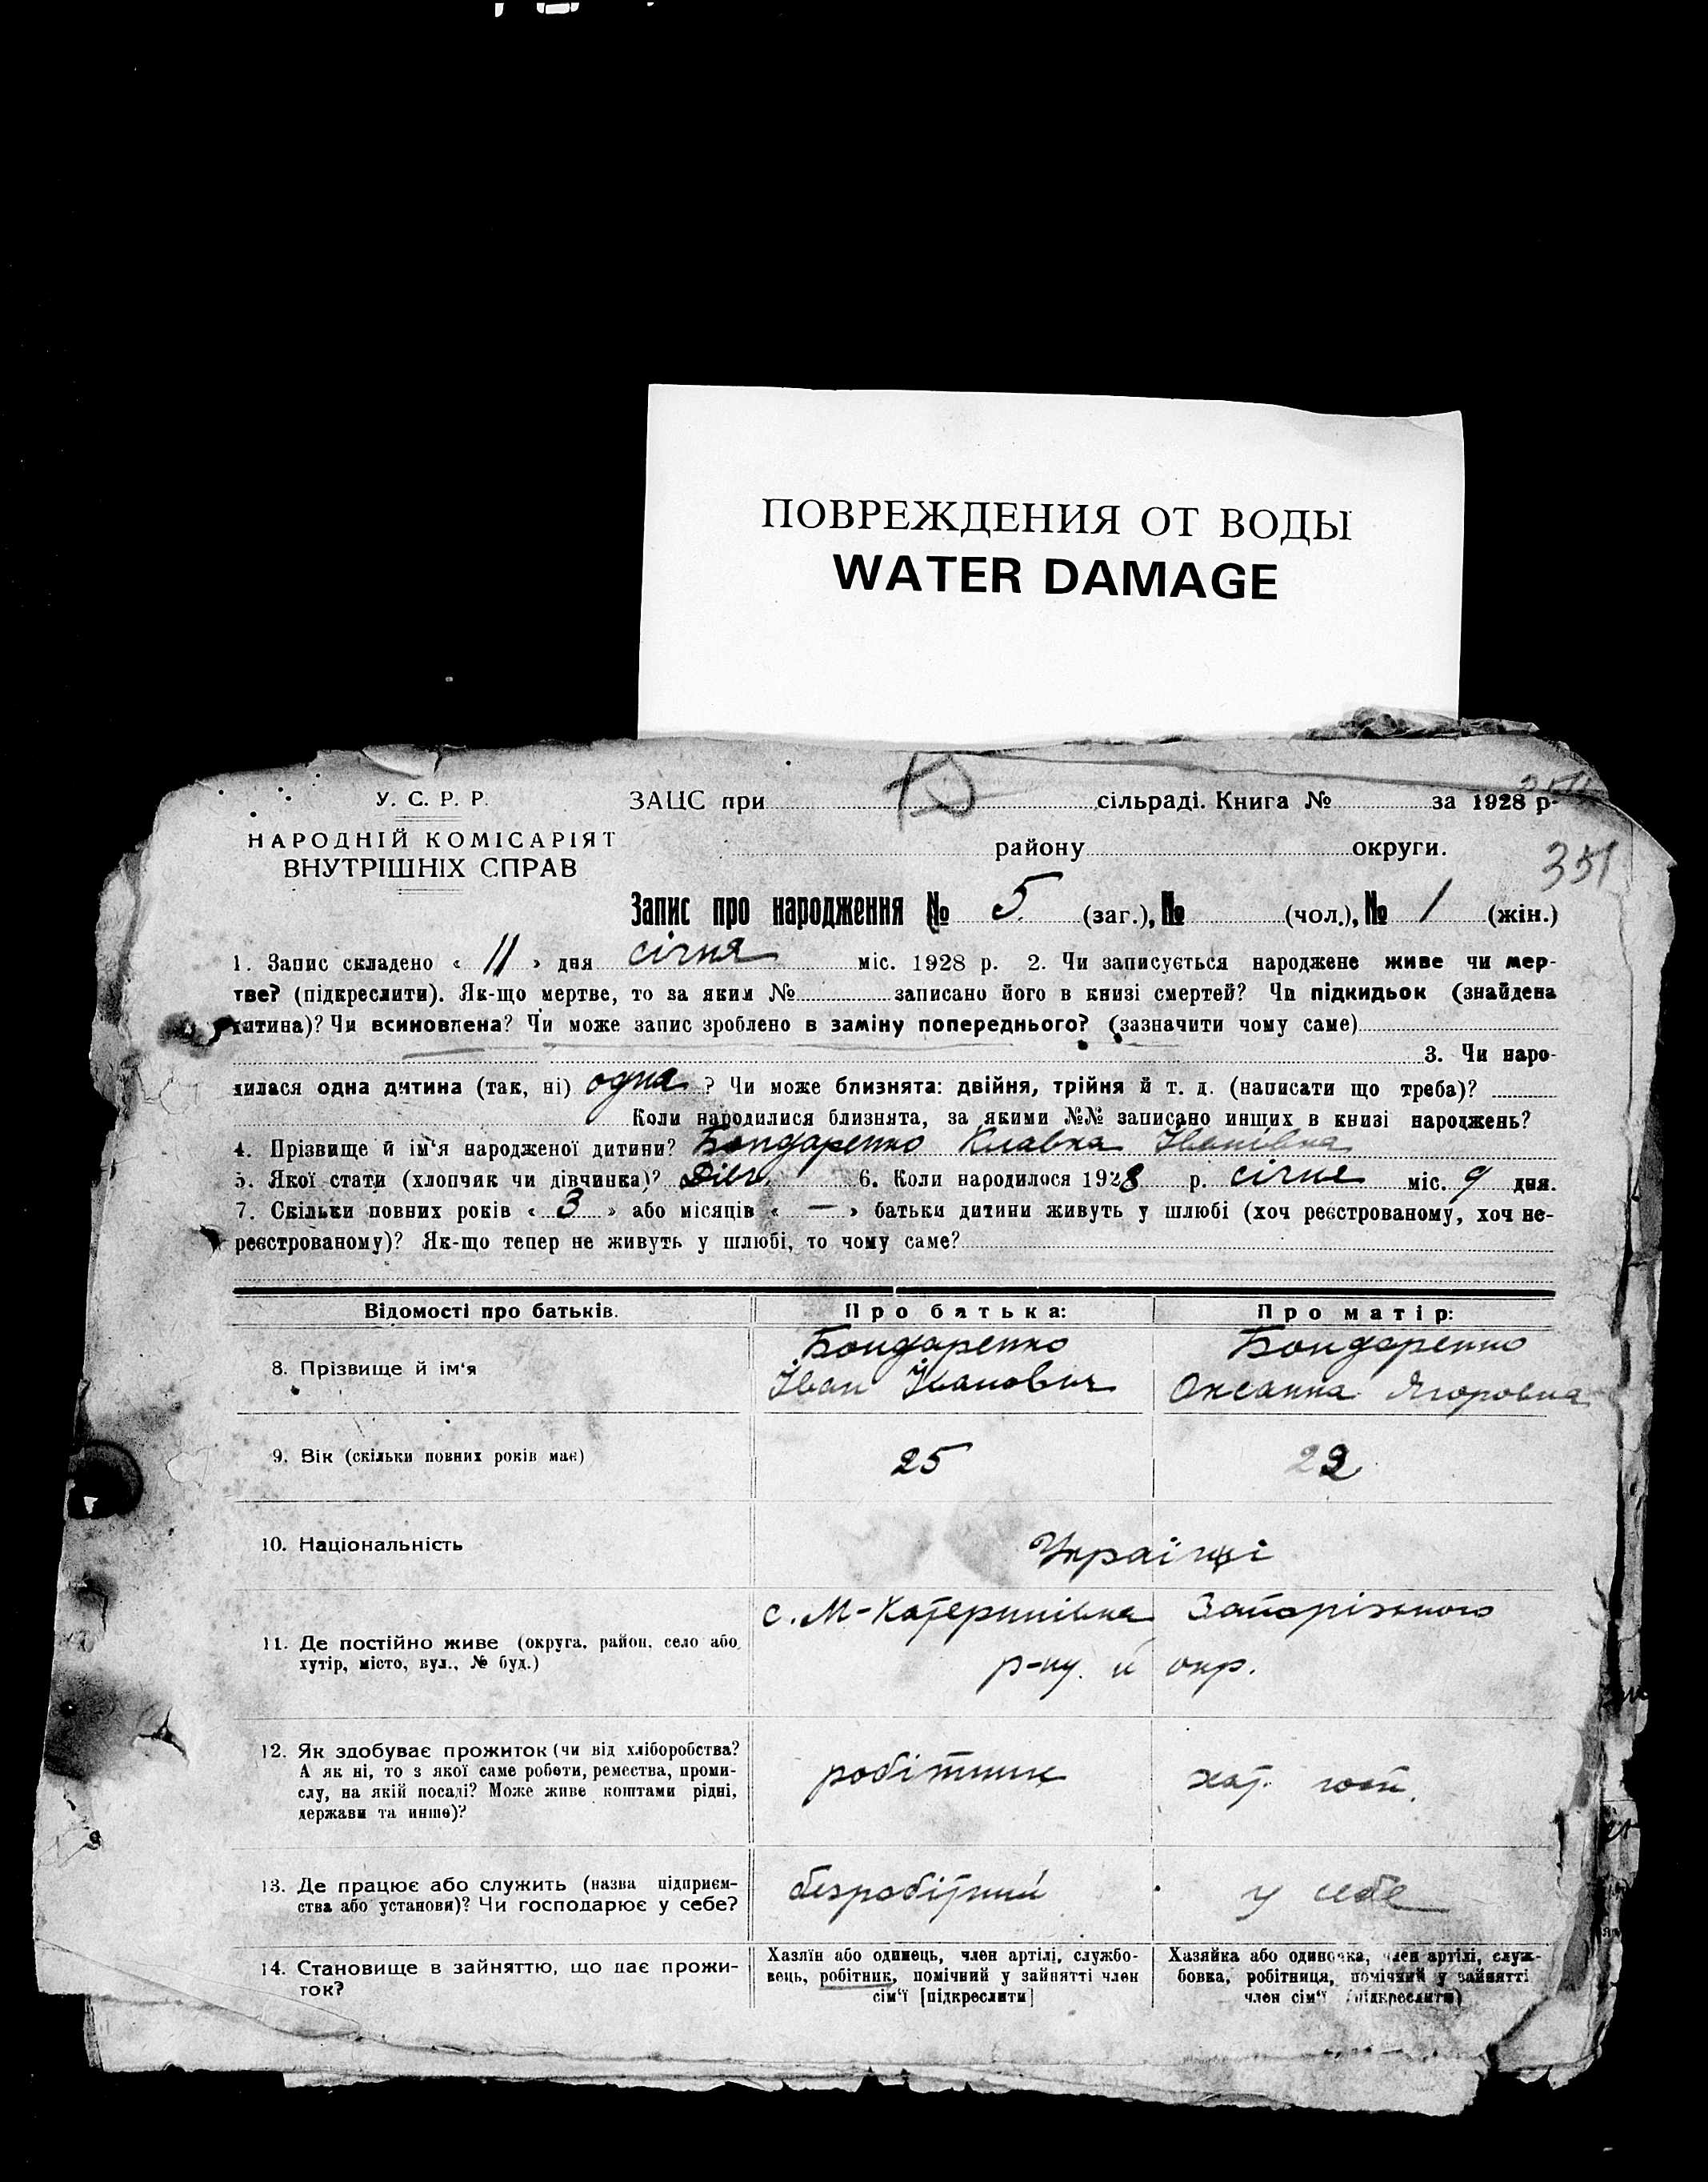 ПОВРЕЖДЕНИЯ ОТ ВОДЫ
WATER DAMAGE
У. С. Р. Р.
НАРОДНІЙ КОМІСАРІЯТ
ВНУТРІШНІХ СПРАВ
ЗАЦС при сільраді. Книга № за 1928 р.
району округи.
351
Запис про народження № 5 (заг.), № (чол.), № 1 (жін.)
1. Запис складено « 11 » дня січня міс. 1928 р. 2. Чи записується народжене живе чи мер-
тве? (підкреслити). Як-що мертве, то за яким № записано його в книзі смертей? Чи підкидьок (знайдена
дитина)? Чи всиновлена? Чи може запис зроблено в заміну попереднього? (зазначити чому саме)
3. Чи наро-
дилася одна дитина (так, ні) одна ? Чи може близнята: двійня, трійня й т. д. (написати що треба)?
Коли народилися близнята, за якими №№ записано инших в книзі народжень?
4. Прізвище й ім'я народженої дитини? Бондаренко Клавка Іванівна
5. Якої стати (хлопчак чи дівчинка)? Дівч. 6. Коли народилося 1928 р. січне міс. 9 дня.
7. Скільки повних років « 3 » або місяців « — » батьки дитини живуть у шлюбі (хоч реєстрованому, хоч не-
реєстрованому)? Як-що тепер не живуть у шлюбі, то чому саме?
Відомості про батьків. Про батька: Про матір:
8. Прізвище й ім'я
Бондаренко Іван Іванович
Бондаренко Оксанна Ягоровна
9. Вік (скільки повних років має) 25 22
10. Національність Українці
11. Де постійно живе (округа, район, село або
хутір, місто, вул., № буд.)
с. М-Катеринівка Запорізького
р-ну й окр.
12. Як здобуває прожиток (чи від хліборобства?
А як ні, то з якої саме роботи, ремества, проми-
слу, на якій посаді? Може живе коштами рідні,
держави та инше)?
робітник хат.
13. Де працює або служить (назва підприєм-
ства або установи)? Чи господарює у себе?
безробітний у себе
14. Становище в зайняттю, що дає прожи-
ток?
Хазяїн або одинець, член артілі, службо-
вець, робітник, помічний у зайнятті член
сім'ї [підкреслити]
Хазяйка або одиночка, член артілі, служ-
бовка, робітниця, помічний у зайнятті
член сім'ї (підкреслити)